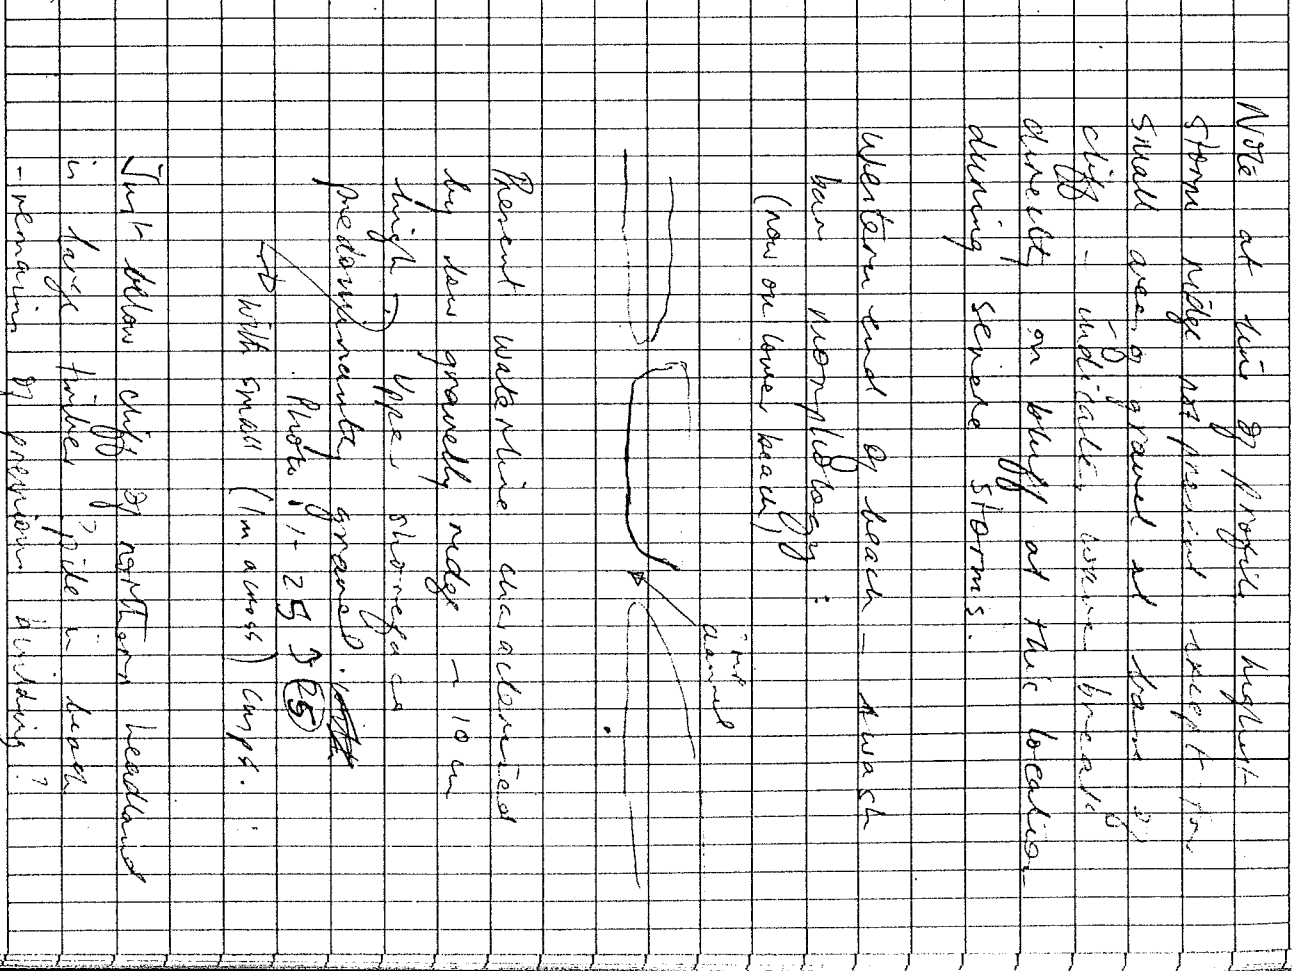 Note at time of profile highest
storm ridge not present except for
small area of gravel at base of
cliff - indicates waves break
directly on bluff at this location
during severe storms.
Western end of beach - swash
bar morphology :
(now on lower beach)
channel
Present waterline characterised
by low gravelly ridge ~ 10 cm
high. Upper shoreface
predominantly gravel.
Photo 1-25 25
with small (1m across) cusps.
Just below cliff of northern headland
is large timber ?pile in beach
- remains of previous building?